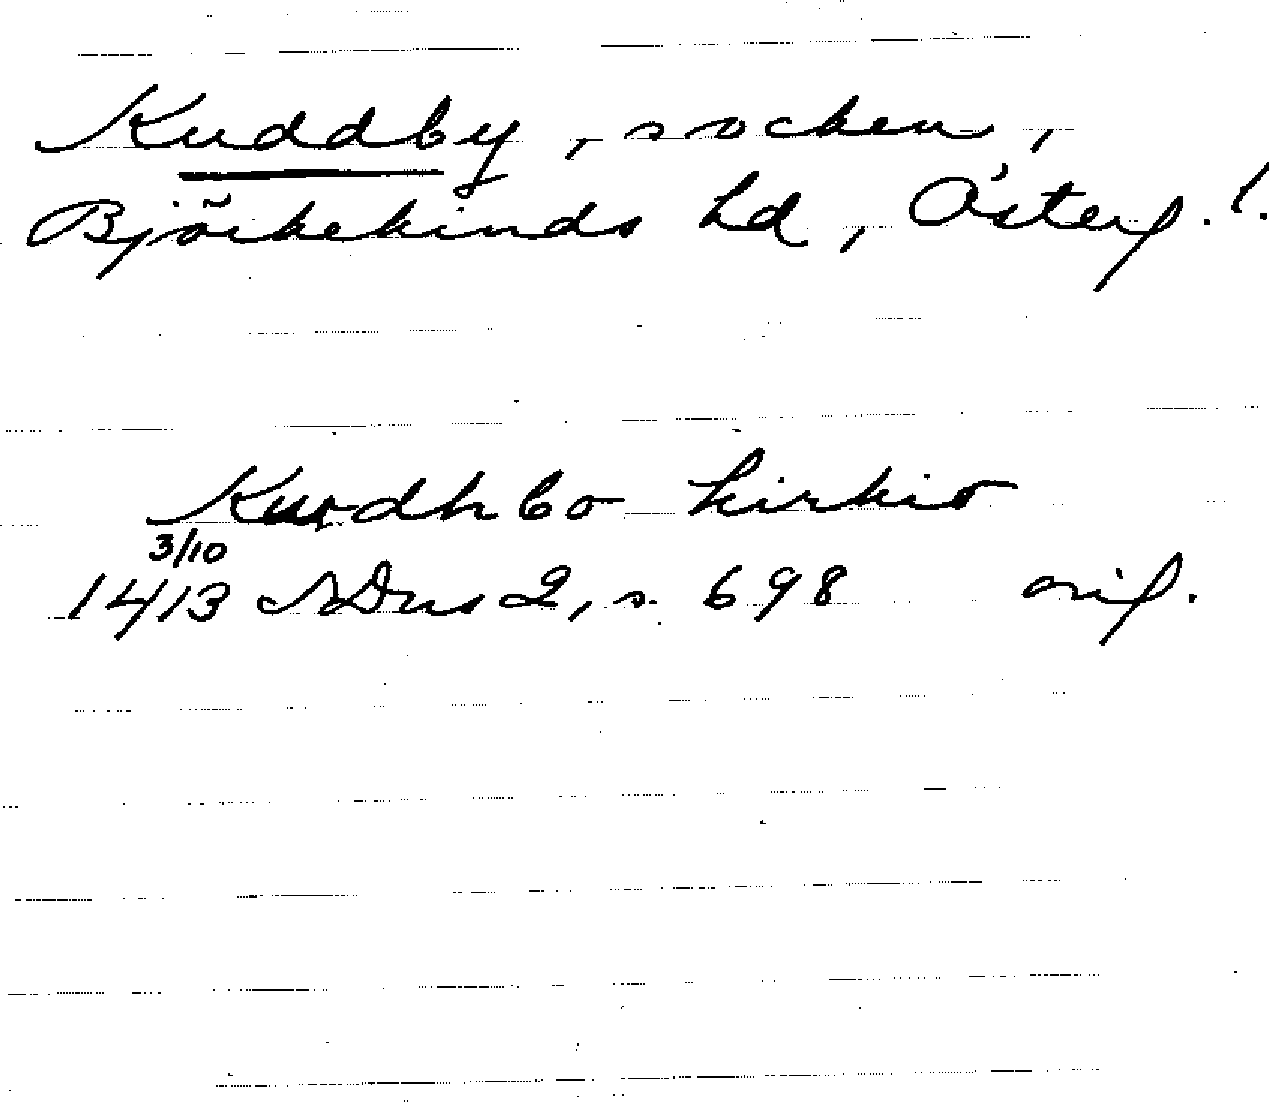 Kuddby, socken,
Björkekinds hd, Österg. l.
Kurdhbo kirkio
3/10
1413 SDns 2, s. 698 orig.